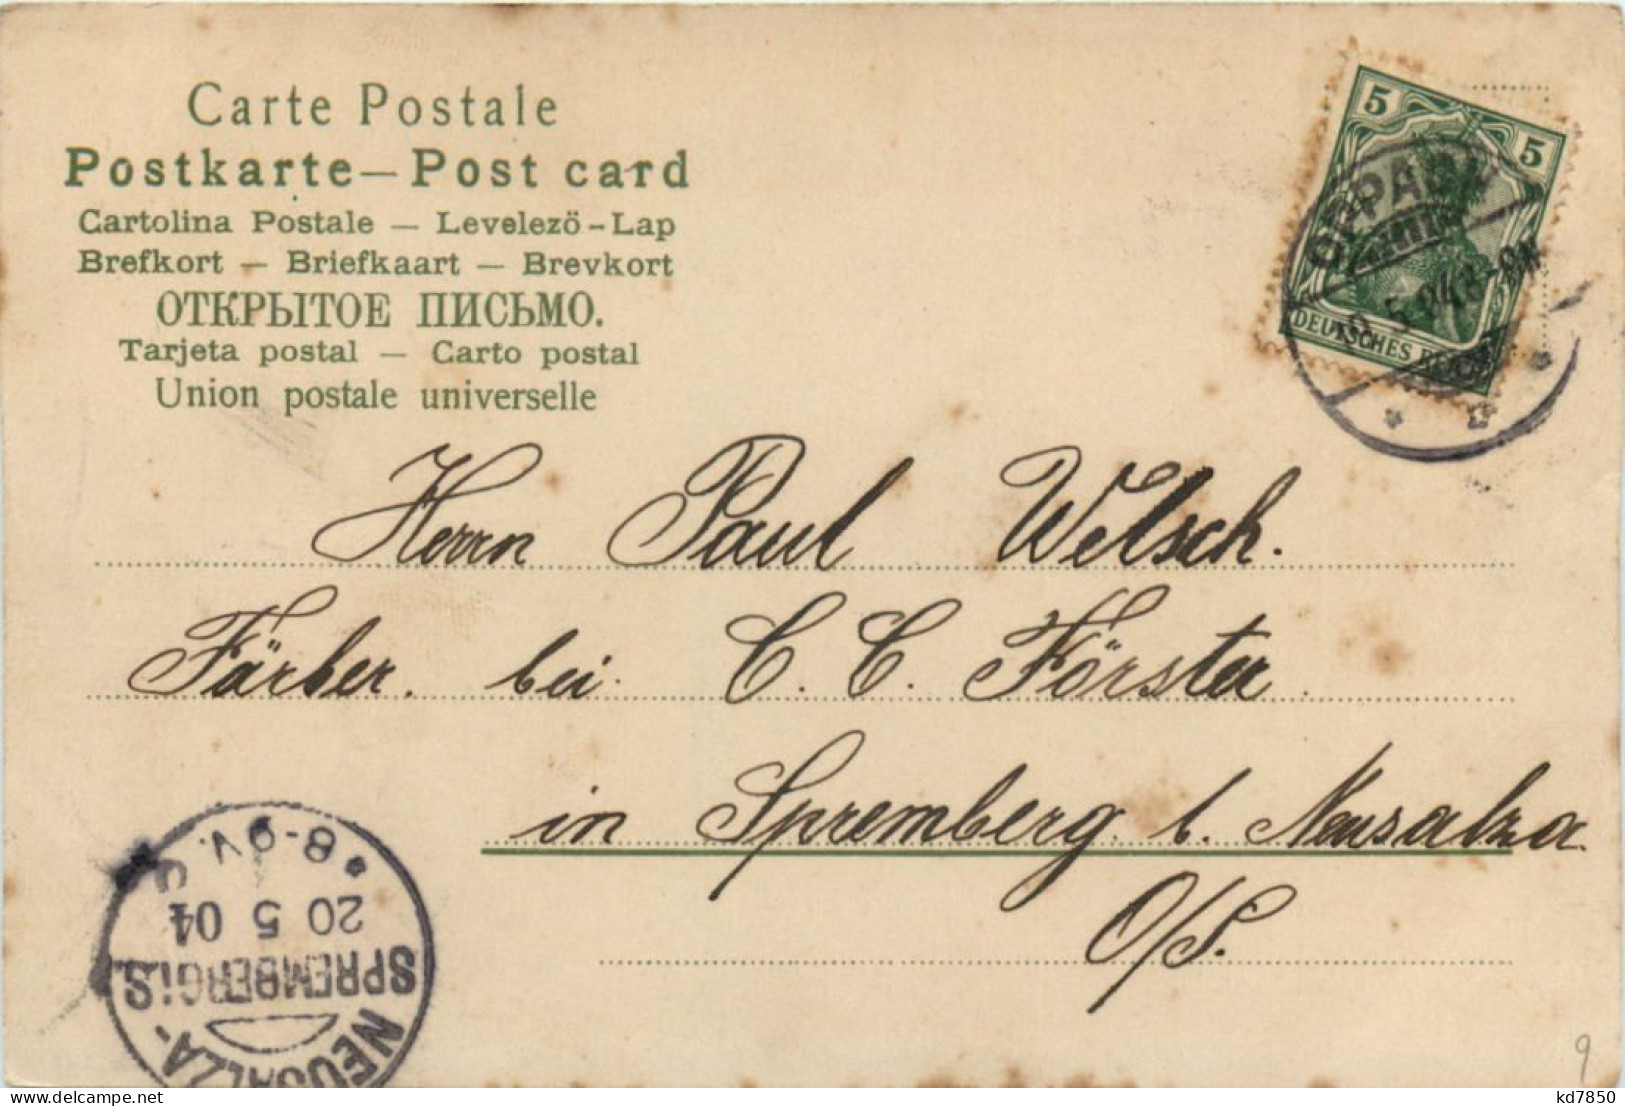 Carte Postale
Postkarte — Post card
Cartolina Postale — Levelező-Lap
Brefkort — Briefkaart — Brevkort
ОТКРЫТОЕ ПИСЬМО.
Tarjeta postal — Carto postal
Union postale universelle
5 5
DEUTSCHES REICH
OPPACH
Herrn Paul Welsch.
Färber. bei C. C. Förster.
in Spremberg b. Neusalza.
O/S.
NEUSALZA-
SPREMBERG i. S.
20 5 04
8-9V.
9
kd7850